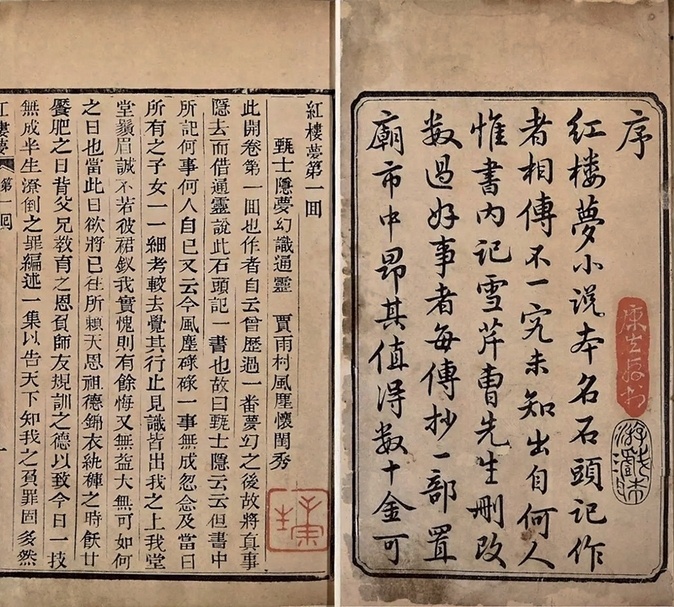 序
红楼夢小说本名石頭記作
者相傳不一究未知出自何人
惟書内記雪芹曹先生刪改
数過好事者每傳抄一部置
廟市中昂其值得数十金可
紅樓夢第一回
甄士隱夢幻識通靈 賈雨村風塵懷閨秀
此開卷第一回也作者自云曾歷過一番夢幻之後故將真事
隱去而借通靈說此石頭記一書也故曰甄士隱云云但書中
所記何事何人自己又云今風塵碌碌一事無成忽念及當日
所有之子女一一細考較去覺其行止見識皆出我之上我堂
堂鬚眉誠不若彼裙釵我實愧則有餘悔又無益大無可如何
之日也當此日欲將已往所賴天恩祖德錦衣紈褲之時飫甘
饜肥之日背父兄教育之恩負師友規訓之德以致今日一技
無成半生潦倒之罪編述一集以告天下知我之負罪固多然
紅樓夢 第一回 一